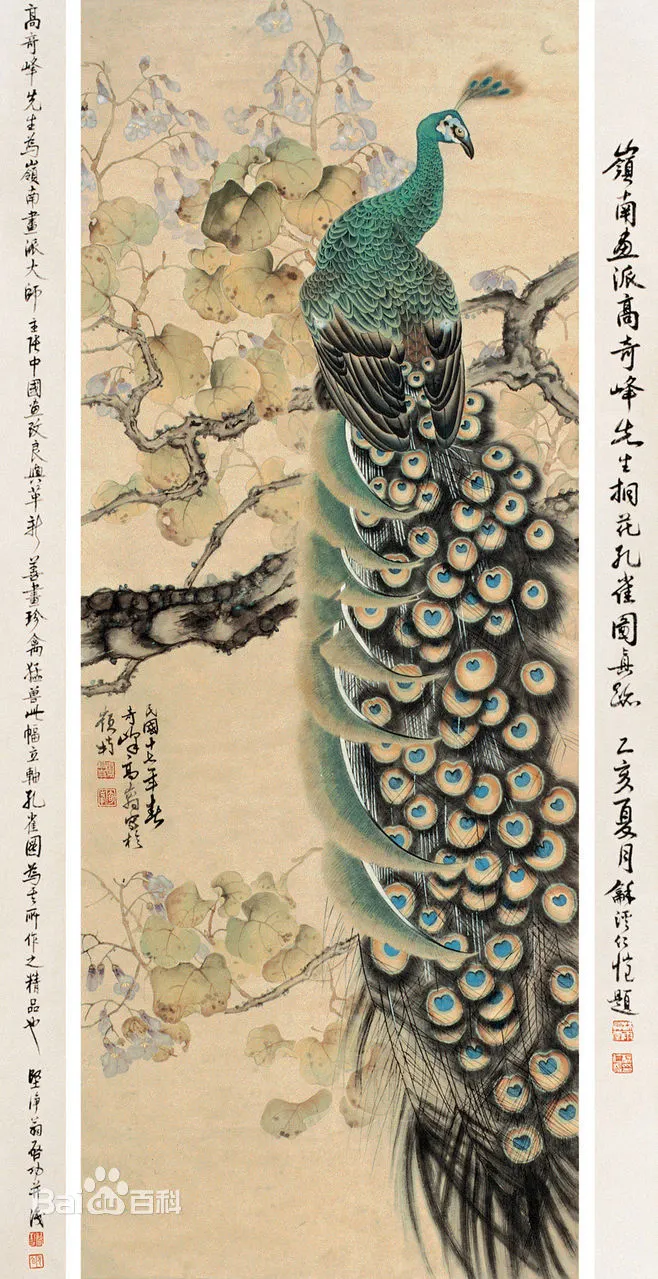 嶺南畫派髙奇峰先生桐花孔雀圖真跡 乙亥夏月龢溪仁愷題
民國十七年春
奇峰髙嵡寫於
嶺
髙奇峰先生為嶺南畫派大師 主張中國畫改良與革新 善畫珍禽猛兽此幅立軸孔雀圖為其所作之精品也 堅净翁啓功并識
Bai 百科